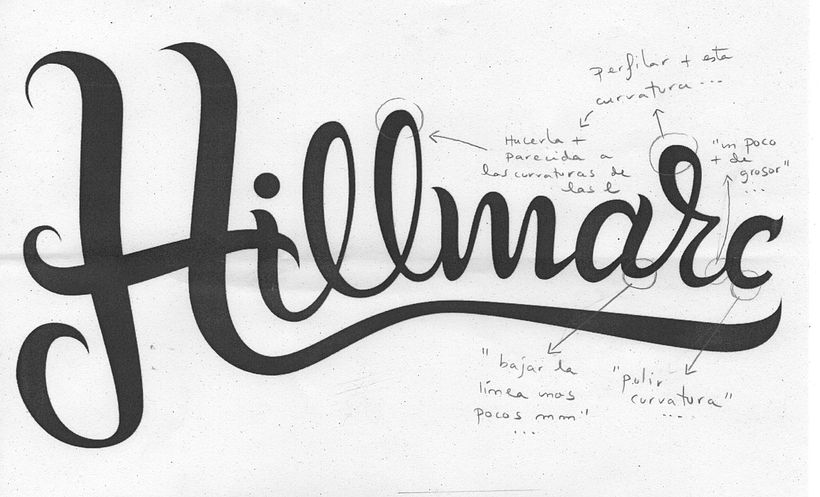 perfilar + esta
curvatura ...
Hacerla +
parecida a
las curvaturas de
las l
"un poco
+ de
grosor"
...
Hillmarc
"bajar la
línea unos
pocos mm"
...
"pulir
curvatura"
....